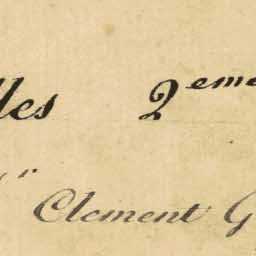 lles 2eme
Clement G